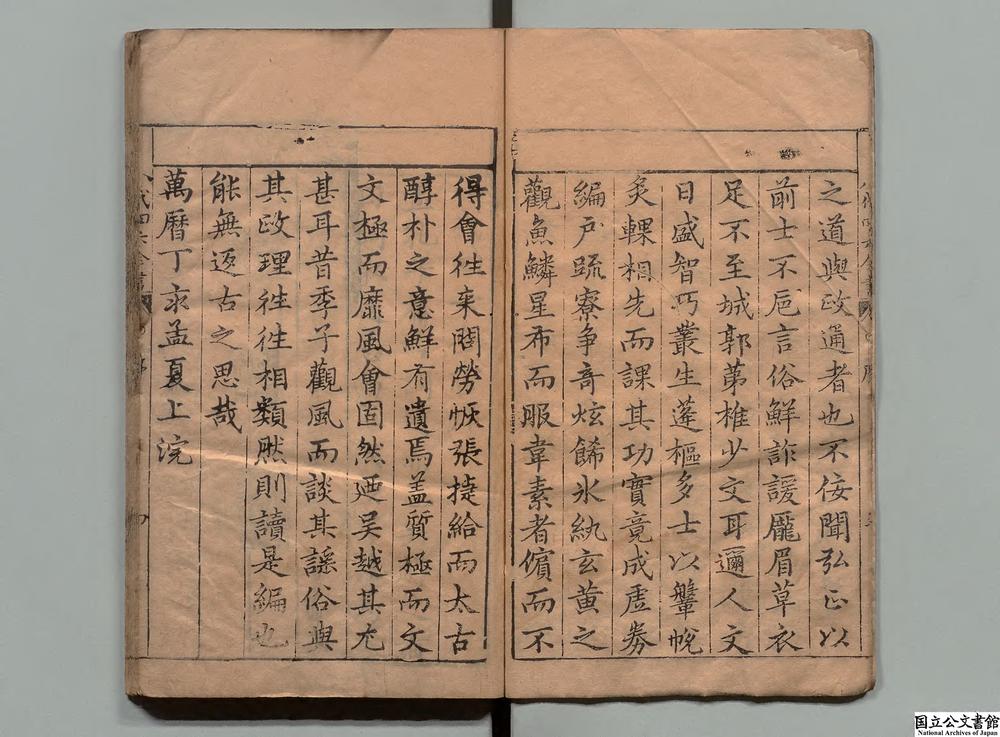 之道與政通者也不佞聞弘正以
前士不巵言俗鮮詐諼龎眉草衣
足不至城郭苐椎少文耳邇人文
日盛智巧叢生蓬樞多士以鞶帨
炙輠相先而課其功實竟成虗劵
編戶䟽寮争奇炫餙氷紈玄黄之
觀魚鱗星布而服韋素者儐而不
得會徃来閼勞帳張捷給而太古
醇朴之意鮮有遺焉盖質極而文
文極而靡風會固然廼吴越其尤
甚耳昔季子觀風而談其謡俗與
其政理徃徃相類然則讀是編也
能無返古之思哉
萬曆丁亥孟夏上浣
八代四六全書
序
国立公文書館
National Archives of Japan